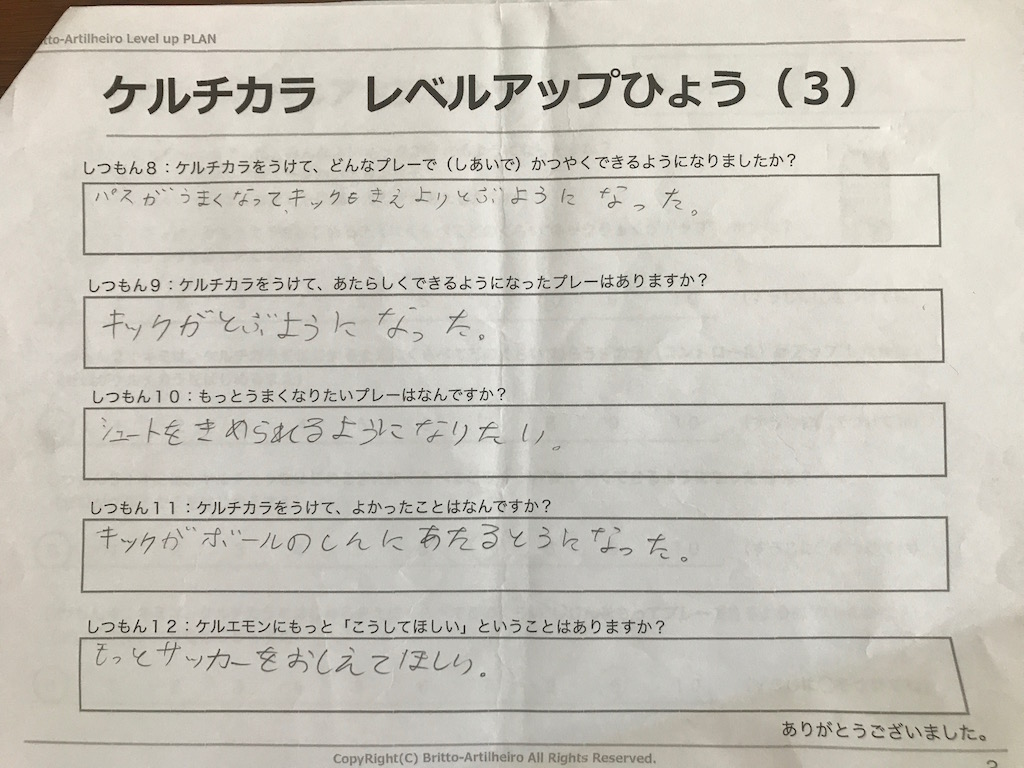 itto-Artilheiro Level up PLAN
ケルチカラ　レベルアップひょう（３）
しつもん８：ケルチカラをうけて、どんなプレーで（しあいで）かつやくできるようになりましたか？
パスがうまくなって、キックもまえよりとぶようになった。
しつもん９：ケルチカラをうけて、あたらしくできるようになったプレーはありますか？
キックがとぶようになった。
しつもん１０：もっとうまくなりたいプレーはなんですか？
シュートをきめられれるようにになりたい。
しつもん１１：ケルチカラをうけて、よかったことはなんですか？
キックがボールのしんにあたるとうになった。
しつもん１２：ケルエモンにもっと「こうしてほしい」ということはありますか？
もっとサッカーをおしえてほしい。
ありがとうございました。
CopyRight(C) Britto-Artilheiro All Rights Reserved.